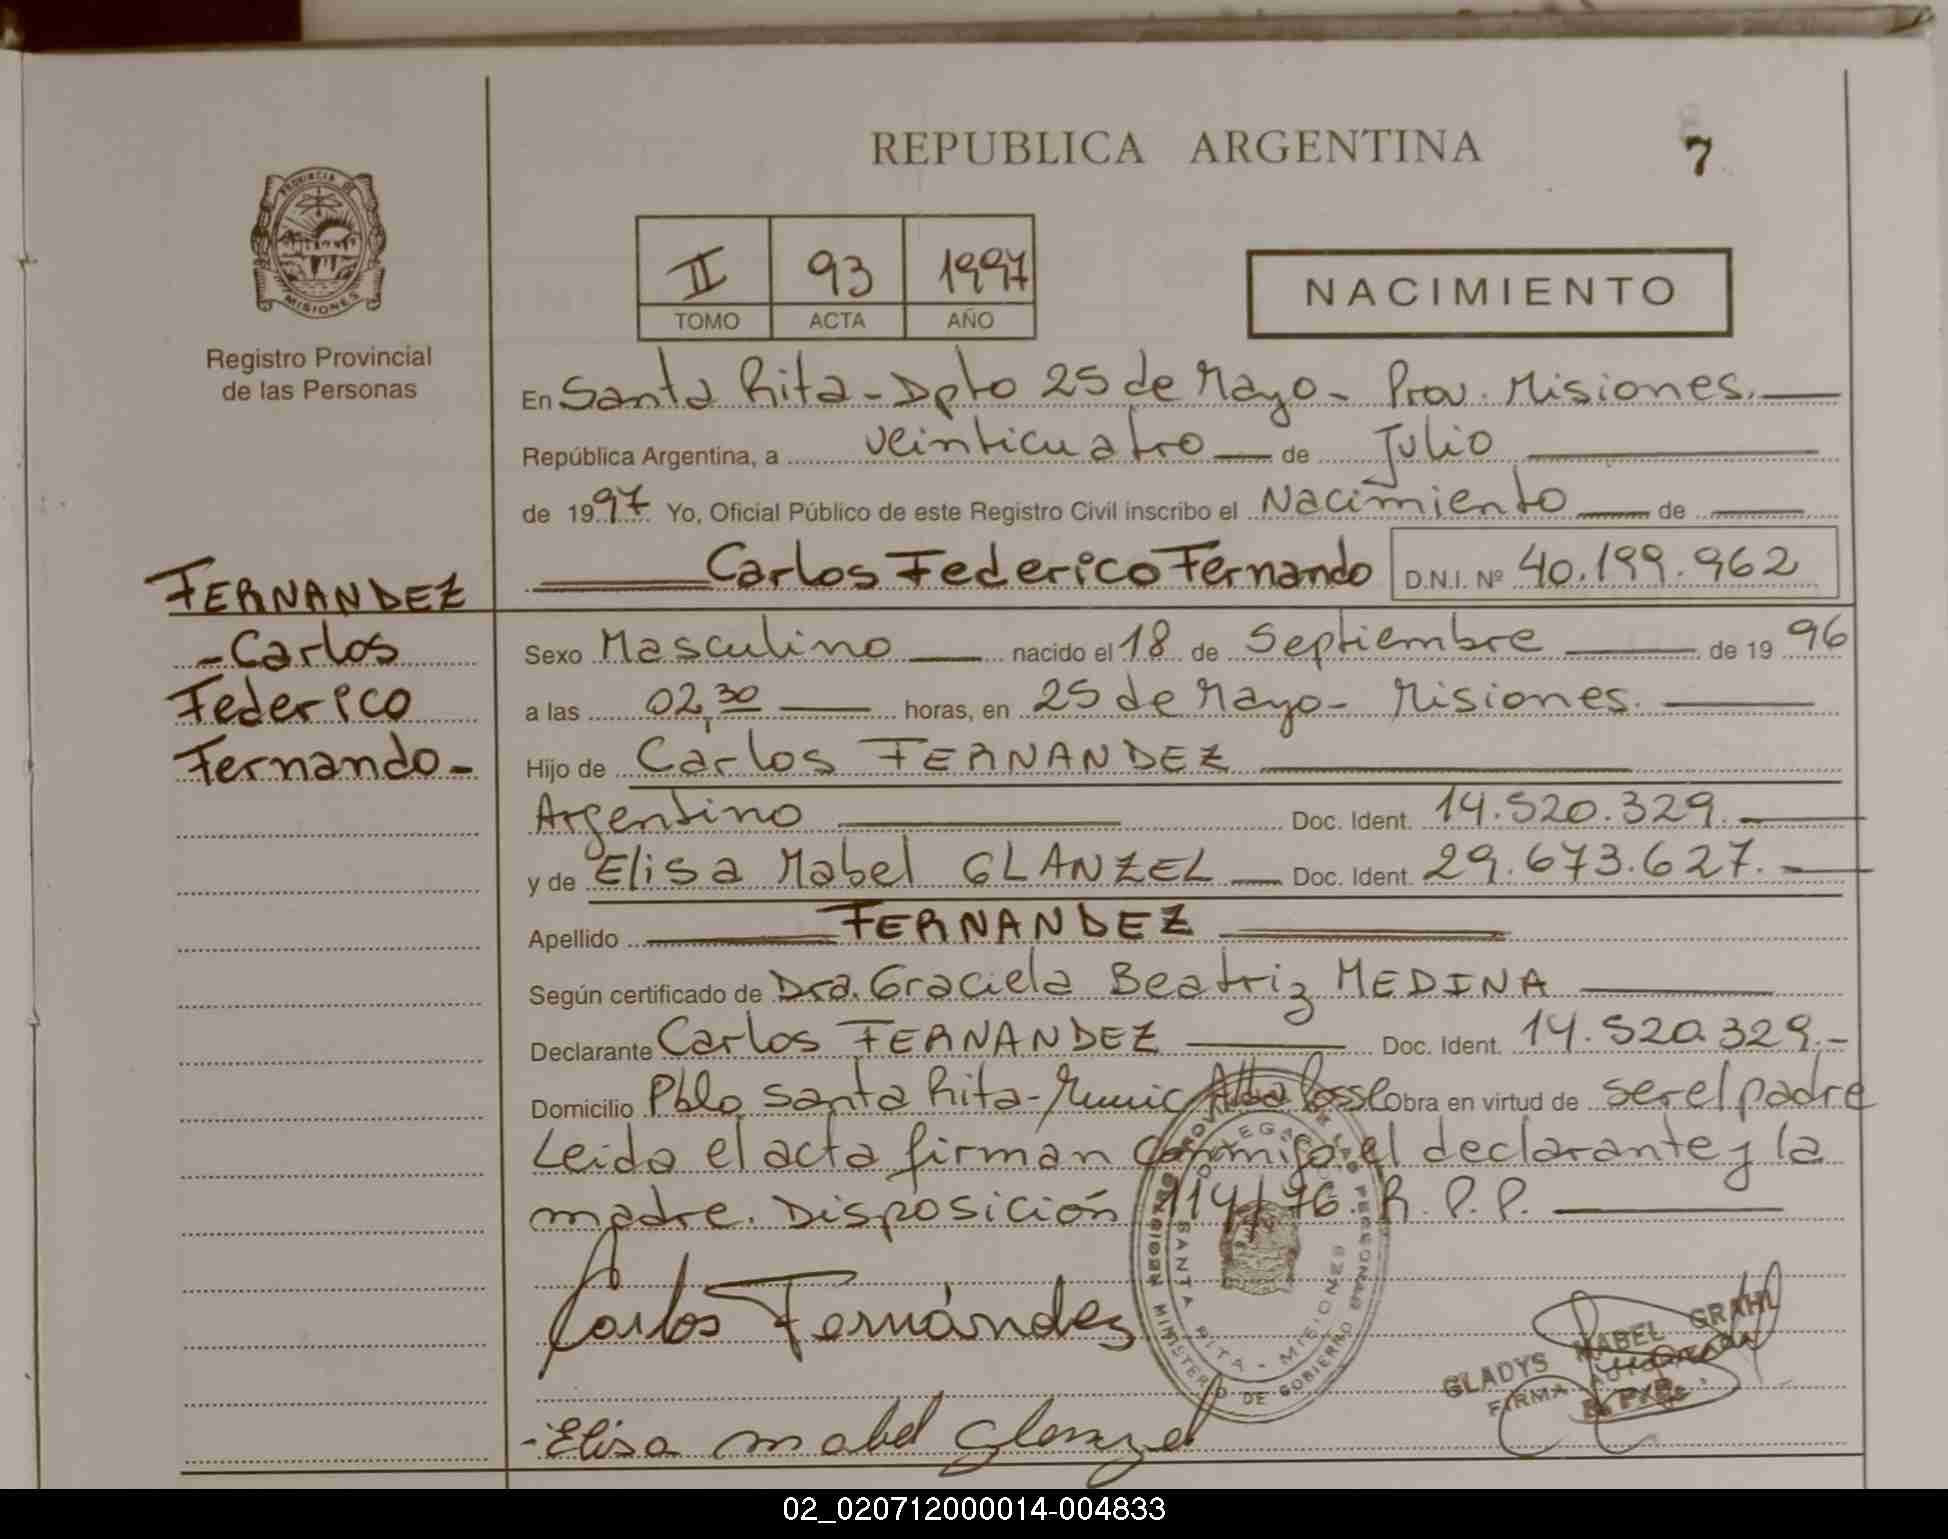 REPUBLICA ARGENTINA
7
PROVINCIA DE
MISIONES
Registro Provincial
de las Personas
II 93 1997
TOMO ACTA AÑO
NACIMIENTO
En Santa Rita - Dpto 25 de Mayo - Prov. Misiones.
República Argentina, a veinticuatro de Julio
de 1997 Yo, Oficial Público de este Registro Civil inscribo el Nacimiento de
Carlos Federico Fernando D.N.I. Nº 40.199.962
FERNANDEZ
- Carlos
Federico
Fernando -
Sexo Masculino nacido el 18 de Septiembre de 19 96
a las 02,30 horas, en 25 de Mayo - Misiones.
Hijo de Carlos FERNANDEZ
Argentino Doc. Ident. 14.520.329.
y de Elisa Mabel GLANZEL Doc. Ident. 29.673.627.
Apellido FERNANDEZ
Según certificado de Dra. Graciela Beatriz MEDINA
Declarante Carlos FERNANDEZ Doc. Ident. 14.520.329.-
Domicilio Pblo Santa Rita - Munic Alba Posse Obra en virtud de ser el padre
Leida el acta firman conmigo el declarante y la
madre. Disposición 114/76. R.P.P.
Carlos Fernández
SANTA RITA - MISIONES
MINISTERIO DE GOBIERNO
GLADYS MABEL GRAHL
FIRMA
- Elisa mabel Glanzel
02_020712000014-004833